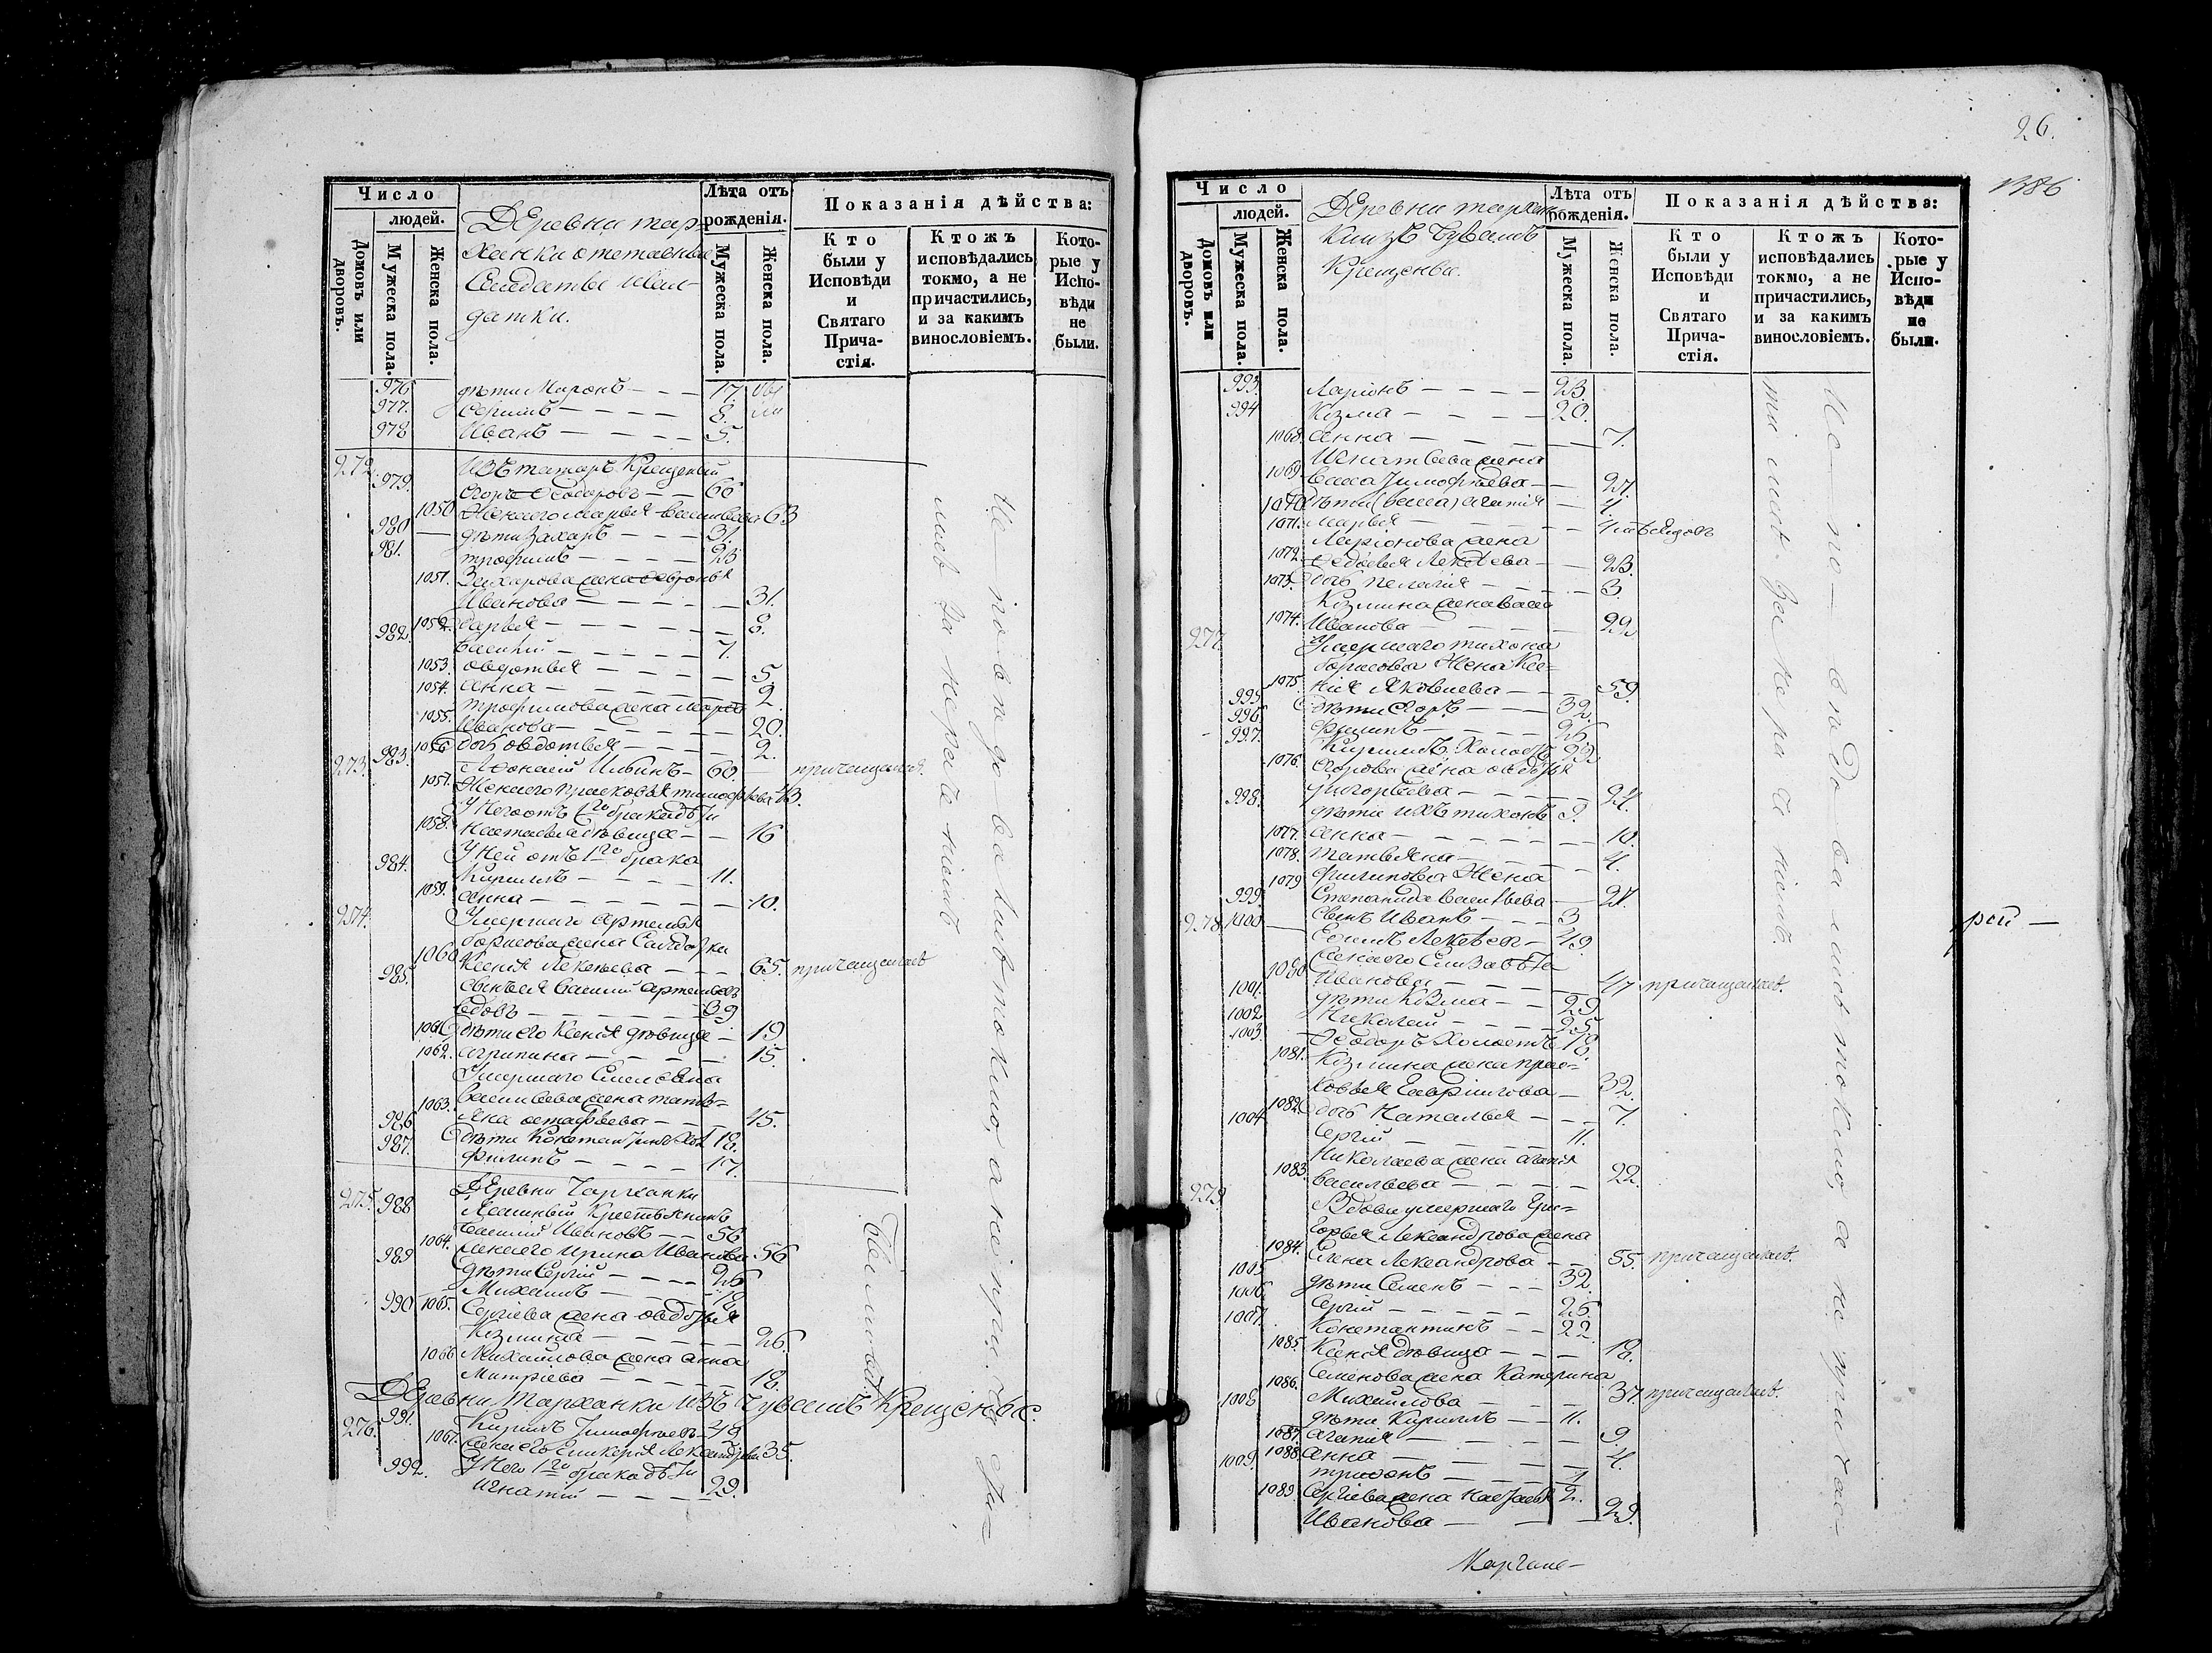 Число
людей.
Домовъ или дворовъ.
Мужеска пола.
Женска пола.
Деревни тар-
ханки отставные
Солдаты и Сол-
датки.
Лѣта отъ рожденія.
Мужеска пола.
Женска пола.
Показанія дѣйства:
Кто были у Исповѣди и Святаго Прича-стія.
Ктожъ исповѣдались токмо, а не причастились, и за какимъ винословіемъ.
Кото-рые у Испо-вѣди не были.
976 дѣти Миронъ — 17.
977. — 8.
978 Иванъ — 5.
272. Изъ татаръ Крещеный
979. Егоръ Ѳедоровъ — 66
1050 Жена его Марья Васильева 63
980 дѣти Захаръ — 31.
981. трофимъ — 23
1051. Захарова жена
Иванова — 31.
1052. дарья — 8.
982. Василій — 7.
1053. овдотья — 5.
1054. анна — 2.
трофимова жена
1055. Иванова — 20.
1056 дочь овдотья — 2.
273. 983. Ильинъ — 60. причащался.
1057. Жена его прасковья тимофѣева 43.
У Него отъ 1го брака дѣти
1058. Настасья дѣвица — 16
У Ней отъ 1го брака
984. Кириллъ — 11.
1059. анна — 10.
274. Умершаго Артемья
борисова жена Солдатка
1060 Ксенія Алексѣева — 65. причащалась
985. Сынъ ея Василій Артемьевъ
вдовъ — 39
1061 дѣти его Ксенія дѣвица — 19
1062. агрипина — 15.
Умершаго
Васильева жена татья-
1063. яна остафьева — 45.
986 дѣти Константинъ Хол. 18.
987. Филипъ — 17.
Деревни Тарханки
275. 988 Крестьянинъ
Василій Ивановъ — 56
1064. жена его ирина Иванова 56
989 дѣти Сергій — 26
Михаилъ — 18.
990 1065. Сергіева жена овдотья
Козмина — 26.
1066 Михайлова жена анна
Митріева — 18.
Деревни Тарханки изъ Чувашъ Крещеные.
276. 991. Кирилъ Тимофѣевъ — 49
1067. жена его Гликерія Александрова 35.
У Него 1го брака дѣти
992. Игнатій — 29.
не по исповѣдовались токмо а не причас-
лись за нераченіемъ
26.
1386
Число
людей.
Домовъ или дворовъ.
Мужеска пола.
Женска пола.
Деревни тархан
ки изъ Чувашъ
Крещеные.
Лѣта отъ рожденія.
Мужеска пола.
Женска пола.
Показанія дѣйства:
Кто были у Исповѣди и Святаго Прича-стія.
Ктожъ исповѣдались токмо, а не причастились, и за какимъ винословіемъ.
Кото-рые у Испо-вѣди не были.
993. Ларіонъ — 23.
994 Козма — 20.
1068. анна — 7.
Игнатьева жена
1069. Васса Тимофѣева — 27.
1070 дѣти агапія — 4.
1071. Марья — 4
Ларіонова жена
1072. Алексѣева — 23.
1073. дочь пелагія — 3.
Козмина жена
1074. Иванова — 22
277. Умершаго тихона
борисова Жена Ксе-
1075. нія Яковлева — 59.
995. дѣти Егоръ — 32.
996. Филипъ — 26.
997. Кириллъ Холостъ 23
1076. Егорова жена овдотья
григорьева — 34.
998. дѣти ихъ тихонъ 9.
1077. анна — 10.
1078. татьяна — 4.
1079 филипова Жена
999. Степанида Васильева — 24.
сынъ Иванъ — 3
278. 1000 Алексѣевъ — 49.
жена его Елизавета
1080. Иванова — 47 причащалась.
1001. дѣти Козма — 29
1002 Николай — 25.
1003. Ѳедоръ Холостъ 18.
1081. Козмина жена прас-
ковья Гаврилова — 32.
1082. дочь Наталья — 7.
1004 Сергій — 11.
Николаева жена агапія
1083. васильева — 22.
279. Вдова умершаго Гри-
горья Александрова жена
1084. Елена Александрова — 55. причащалась.
1005 дѣти Семенъ — 32.
1006 Сергій — 26.
1007. Константинъ — 22.
1085. Ксенія дѣвица — 18.
Семенова жена Катерина
1086. Михайлова — 37. причащалась.
1008 дѣти Кириллъ — 11.
1087. агапія — 9.
1088. анна — 4.
1009. трифонъ — 1
1089. Сергіева жена настасья 2.
Иванова — 23.
рой —